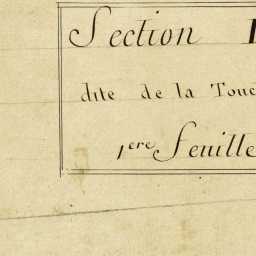 Section
dite de la Touc
1ere feuille